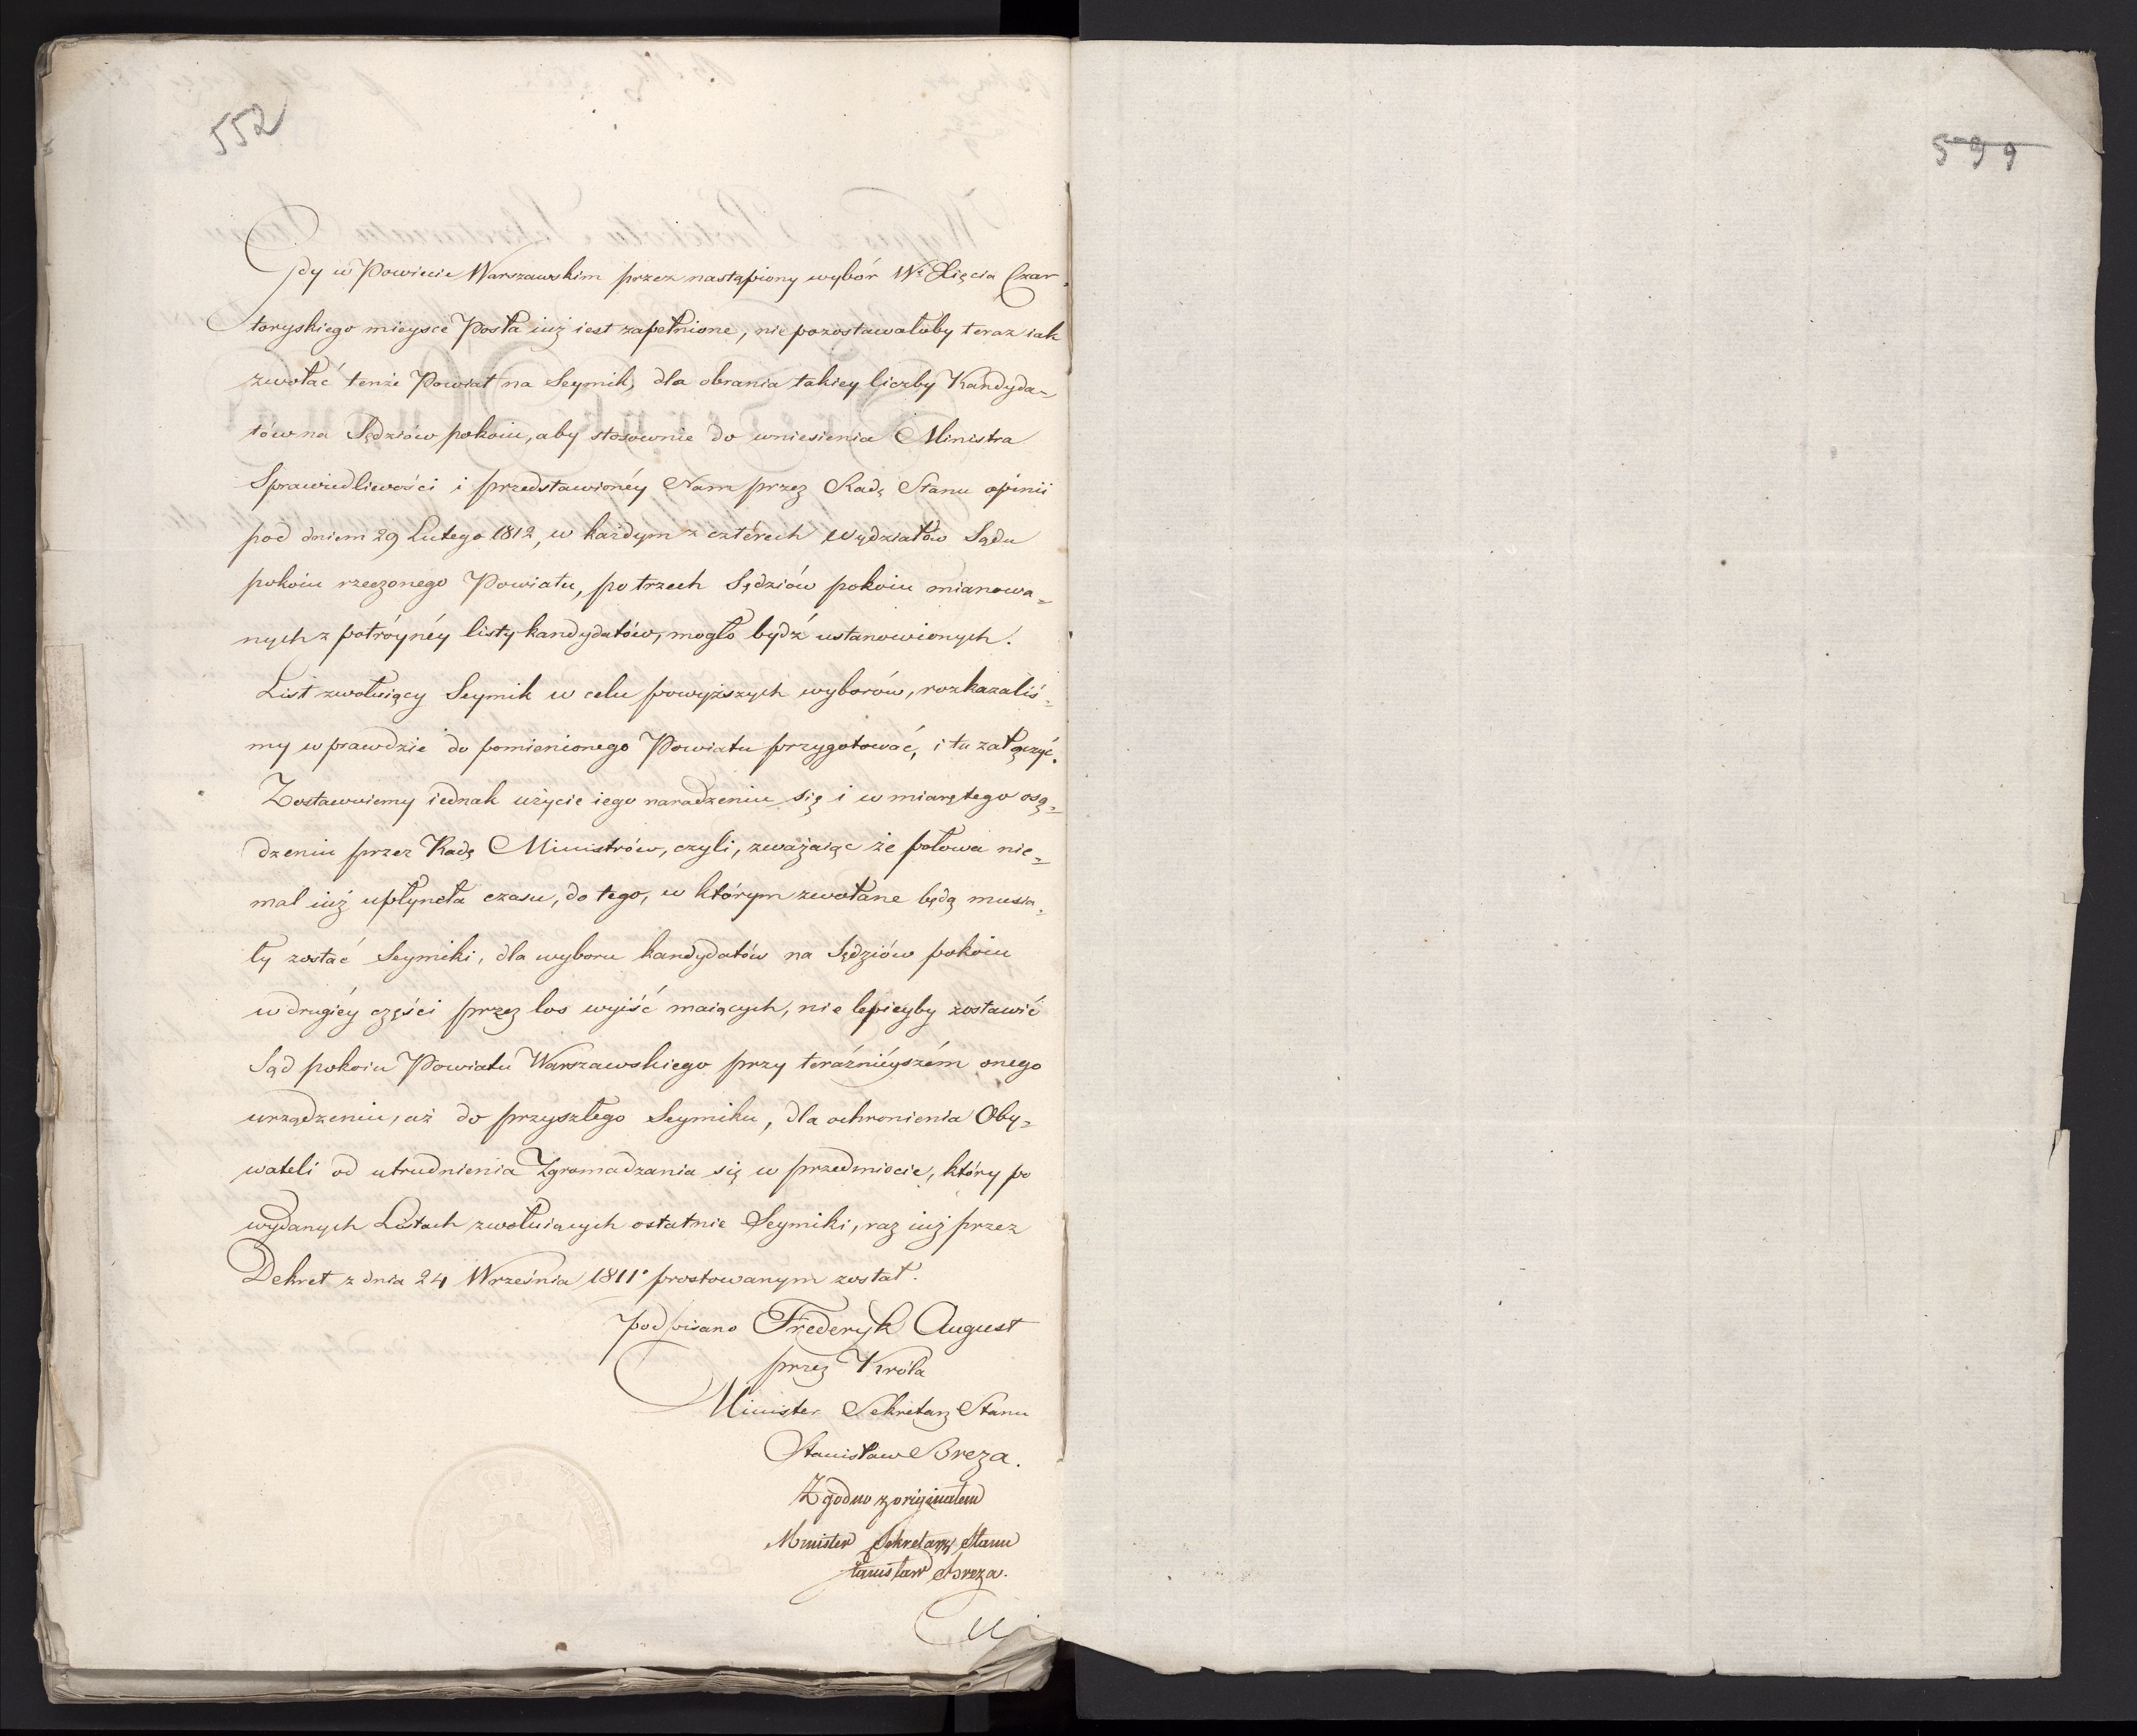 552
Gdy w Powiecie Warszawskim przez nastąpiony wybór Wo Xięcia Czar-
toryskiego mieysce Posła iuż iest zapełnione, nie pozostawałoby teraz iak
zwołać tenże Powiat na Seymik, dla obrania takiey liczby Kandyda-
tów na Sędziów pokoiu, aby stosownie do wniesienia Ministra
Sprawiedliwości i przedstawionéy Nam przez Radę Stanu opinii
pod dniem 29 Lutego 1812, w każdym z czterech Wydziałów Sądu
pokoiu rzeczonego Powiatu, po trzech Sędziów pokoiu mianowa-
nych z potróynéy listy kandydatów, mogło bydź ustanowionych.
List zwołuiący Seymik w celu powyższych wyborów, rozkazaliś-
my wprawdzie do pomienionego Powiatu przygotować, i tu załączyć.
Zostawuiemy iednak użycie iego naradzeniu się i w miarę tego osą-
dzeniu przez Radę Ministrów, czyli, zważaiąc że połowa nie-
mal iuż upłyneła czasu, do tego, w którym zwołane będą musia-
ły zostać Seymiki, dla wyboru kandydatów na Sędziów pokoiu
w drugiéy części przez los wyiść maiących, nie lepieyby zostawić
Sąd pokoiu Powiatu Warszawskiego przy teraźniéyszém onego
urządzeniu, aż do przyszłego Seymiku, dla ochronienia Oby-
wateli od utrudnienia Zgromadzania się w przedmiocie, który po
wydanych Listach zwołuiących ostatnie Seymiki, raz iuż przez
Dekret z dnia 24 Września 1811o prostowanym został.
podpisano Frederyk August
przez Króla
Minister Sekretarz Stanu
Stanisław Breza.
Zgodno z originałem
Minister Sekretarz Stanu
Stanisław Breza.
599